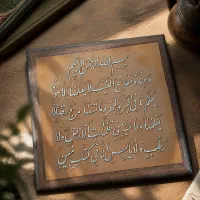 بسم الله الرحمن الرحيم
وعنده مفاتح الغيب لا يعلمها إلا هو و
يعلم ما في البر والبحر وما تسقط من ورقة إلا
يعلمها ولا حبة في ظلمات الأرض ولا
رطب ولا يابس إلا في كتاب مبين